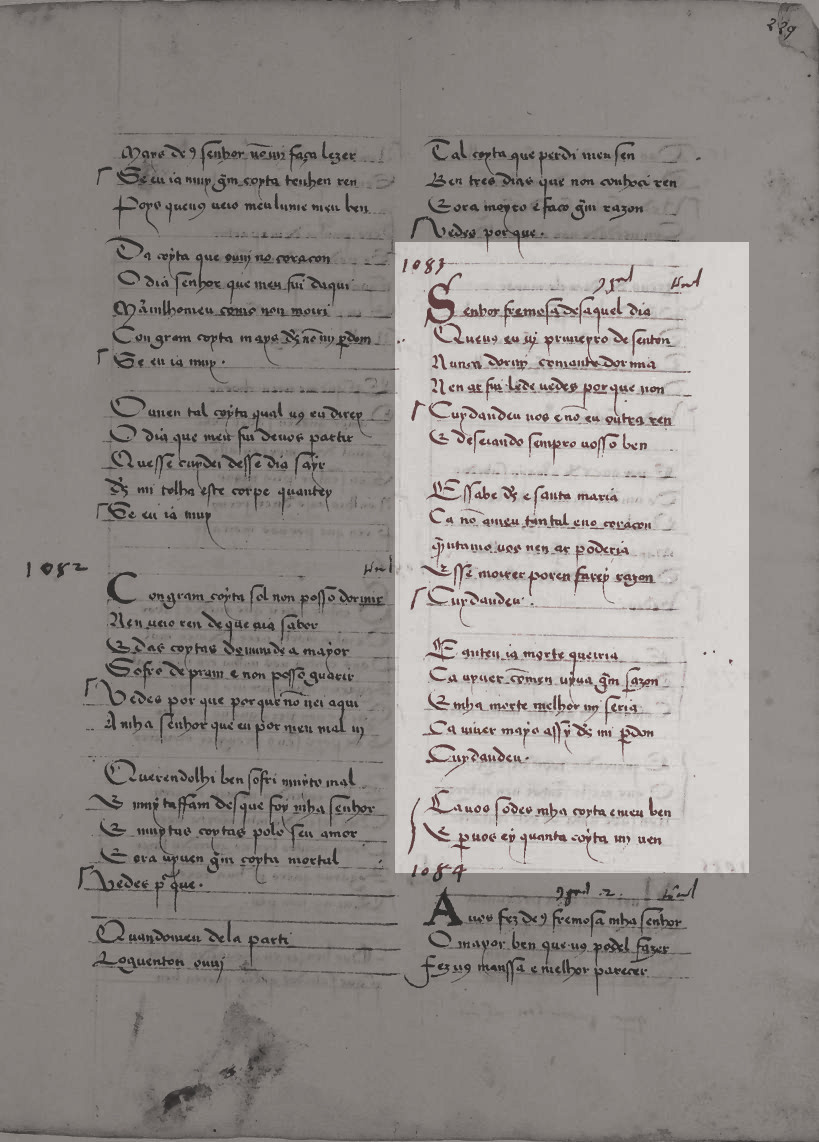 229
Mays de9 senhor nō mi faça lezer
Se eu ia muy gm̄ coyta tenhen ren
Poys queu9 ueio meu lume meu ben
Da coyta que ouui no coraçon
O dia senhor que meu fui daqui
Marauilhomeu como non moiri
Con gram coyta mays d's nō mi p̄don
Se eu ia muy .
Ouuen tal coyta qual u9 eu direy
O dia que meu fui deuos partir
Quesse cuydei desse dia sayr
d's mi tolha este corpe quantey
Se eu ia muy
1082
Con gram coyta sol non posso dormir
Nen ueio ren de que aia sabor
E das coytas do mund a mayor
Sofro de pram e non posso guarir
Vedes por que por que nō uei aqui
A mha senhor que eu por meu mal ui
Querendolhi ben sofri muyto mal
E muyt affam desque foy mha senhor
E muytas coytas polo seu amor
E ora uyuen gm̄ coyta mortal
Vedes p' que .
Quandomeu dela parti
Loguentou ouui
Tal coyta que perdi meu sen
Ben tres dias que non conhoci ren
E ora moyro e faço gm̄ razon
Vedes por que .
1083
Senhor fremosa desaquel dia
Queu9 eu ui primeyro desenton
Nunca dormi comante dormia
Nen ar fui lede uedes por que non
Cuydandeu uos e nō en outra ren
E deseiando sempro uosso ben
E ssabe d's e santa maria
Ca nō ameu tan tal eno coraçon
q̄ntamo uos nen ar poderia
E sse moirer poren farey razon
Cuydandeu .
E anteu ia morte queiria
Ca uyuer comeu uyuo gm̄ sazon
E mha morte melhor mi seria
Ca uiuer mays assy d's mi p̄don
Cuydandeu .
Ca uos sodes mha coyta e meu ben
E p̄ uos ey quanta coyta mi uen
1084
A uos fez de9 fremosa mha senhor
O mayor ben que u9 podel fazer
Fez u9 manssa e melhor parecer